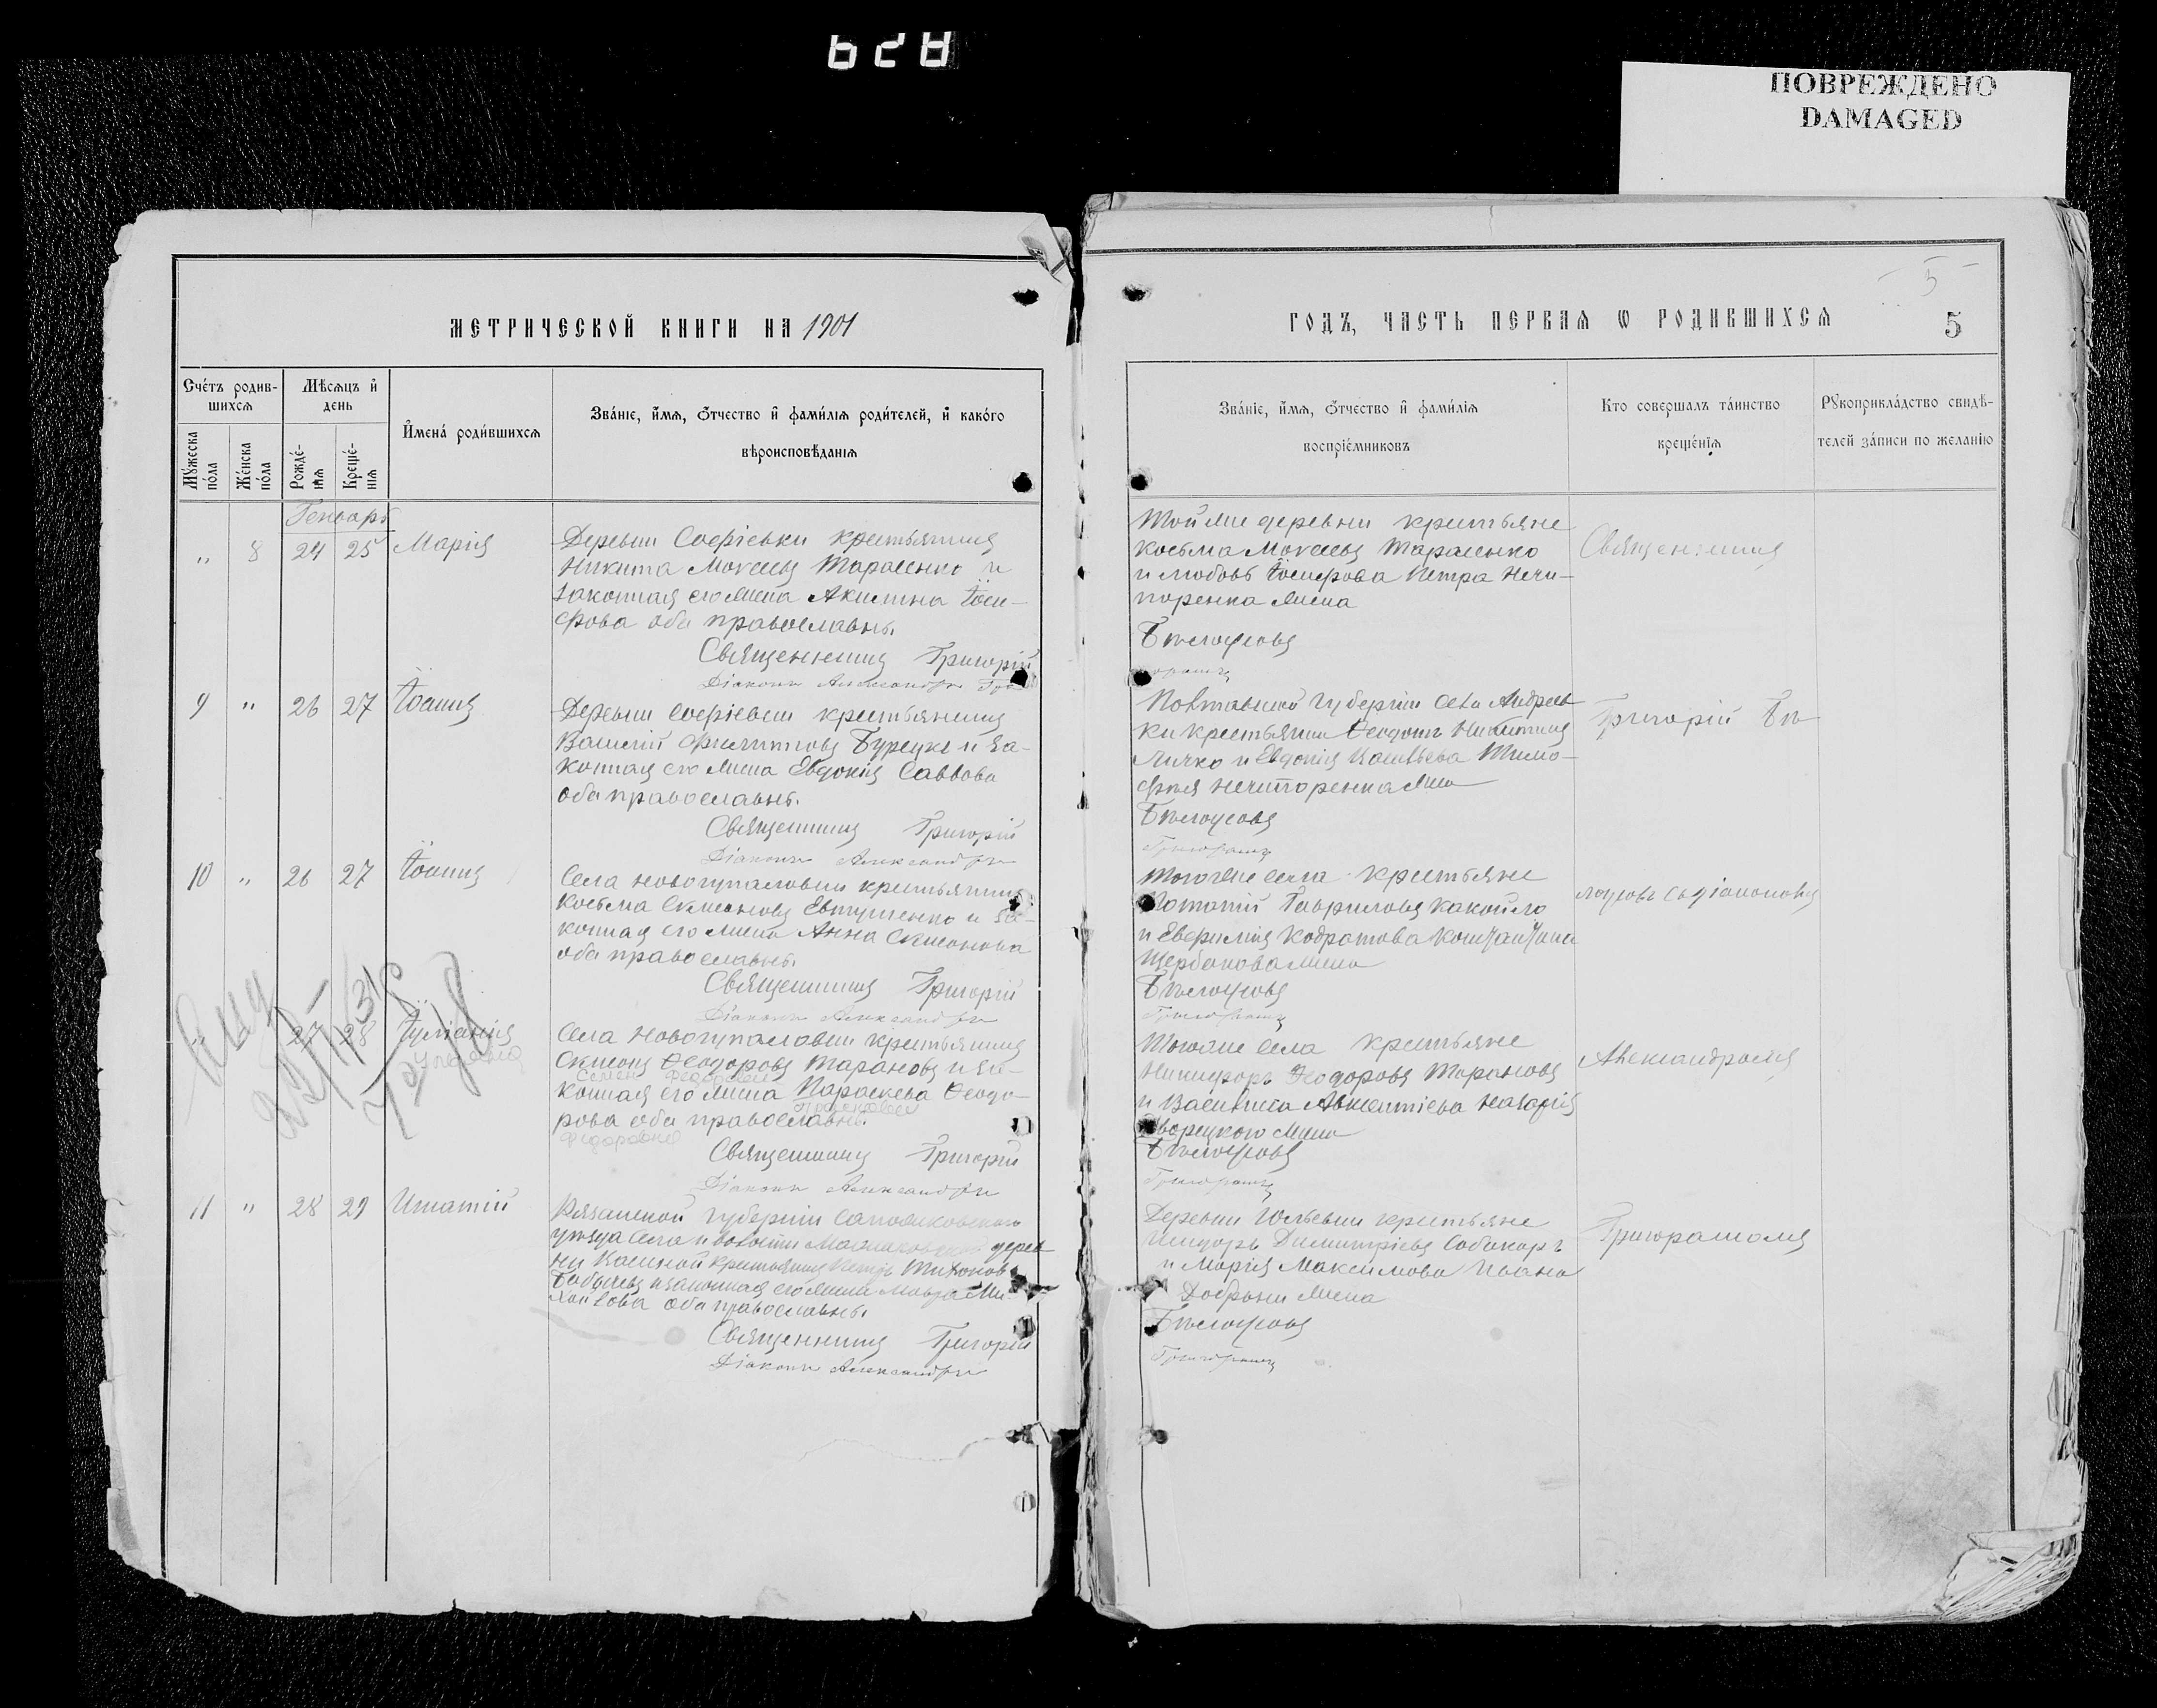 628
ПОВРЕЖДЕНО
DAMAGED
МЕТРИЧЕСКОЙ КНИГИ НА 1901
ГОДЪ, ЧАСТЬ ПЕРВАЯ Ѡ РОДИВШИХСЯ
5
5
Счетъ родив-
шихся
Мѣсяцъ и
день
Имена родившихся
Званіе, имя, отчество и фамилія родителей, и какого
вѣроисповѣданія
Мужеска пола
Женска пола
Рожде-
нія
Креще-
нія
Званіе, имя, отчество и фамилія
воспріемниковъ
Кто совершалъ таинство
крещенія
Рукоприкладство свидѣ-
телей записи по желанію
Генварь
" 8 24 25 Марія
Деревни Софіевки крестьянинъ
Никита Моисеевъ Тарасенко и
законная его жена Акилина Іоси-
фова оба православны.
Священникъ Григорій
Діаконъ Александръ
Той же деревни крестьяне
Косьма Моисеевъ Тарасенко
и Любовь Іосифова Петра Нечи-
поренка жена
Бѣлоусовъ
Священникъ
9 " 26 27 Іоаннъ
Деревни Софіевки крестьянинъ
Василій Филипповъ Бурецкъ и за-
конная его жена Евдокія Саввова
оба православны.
Священникъ Григорій
Діаконъ Александръ
Полтавской губерніи села Андреев-
ки крестьянинъ Ѳеодотъ Никитинъ
Личко и Евдокія Васильева Тимо-
фея Нечипоренка жена
Бѣлоусовъ
Григорашъ
Григорій Бѣ-
10 " 26 27 Іоаннъ
Села Новогупаловки крестьянинъ
Косьма Симеоновъ Евтушенко и за-
конная его жена Анна Симеонова
оба православны.
Священникъ Григорій
Діаконъ Александръ
Того же села крестьяне
Потапій Гавриловъ Какойло
и Евфимія Кодратова Константина
Щербакова жена
Бѣлоусовъ
Григорашъ
лоусовъ съ діакономъ
" 27 28 Іуліанія
Ульяна
Села Новогупаловки крестьянинъ
Симеонъ Ѳеодоровъ Тарановъ и за-
Семен Федорович
конная его жена Параскева Ѳеодо-
рова оба православны.
Федоровна
Священникъ Григорій
Діаконъ Александръ
Того же села крестьяне
Никифоръ Ѳеодоровъ Тарановъ
и Васильиса Авксентіева Назарія
Дворецкого жена
Бѣлоусовъ
Григорашъ
Александромъ
11 " 28 29 Игнатій
Рязанской губерніи Сапожковского
уѣзда села и волости дерев-
ни крестьянинъ Петръ Тихоновъ
и законная его жена Мавра Ми-
хайлова оба православны.
Священникъ Григорій
Діаконъ Александръ
Деревни Юльевки крестьяне
Исидоръ Димитріевъ Собакарь
и Марія Максимова Ивана
Добрыни жена
Бѣлоусовъ
Григорашъ
Григорашомъ